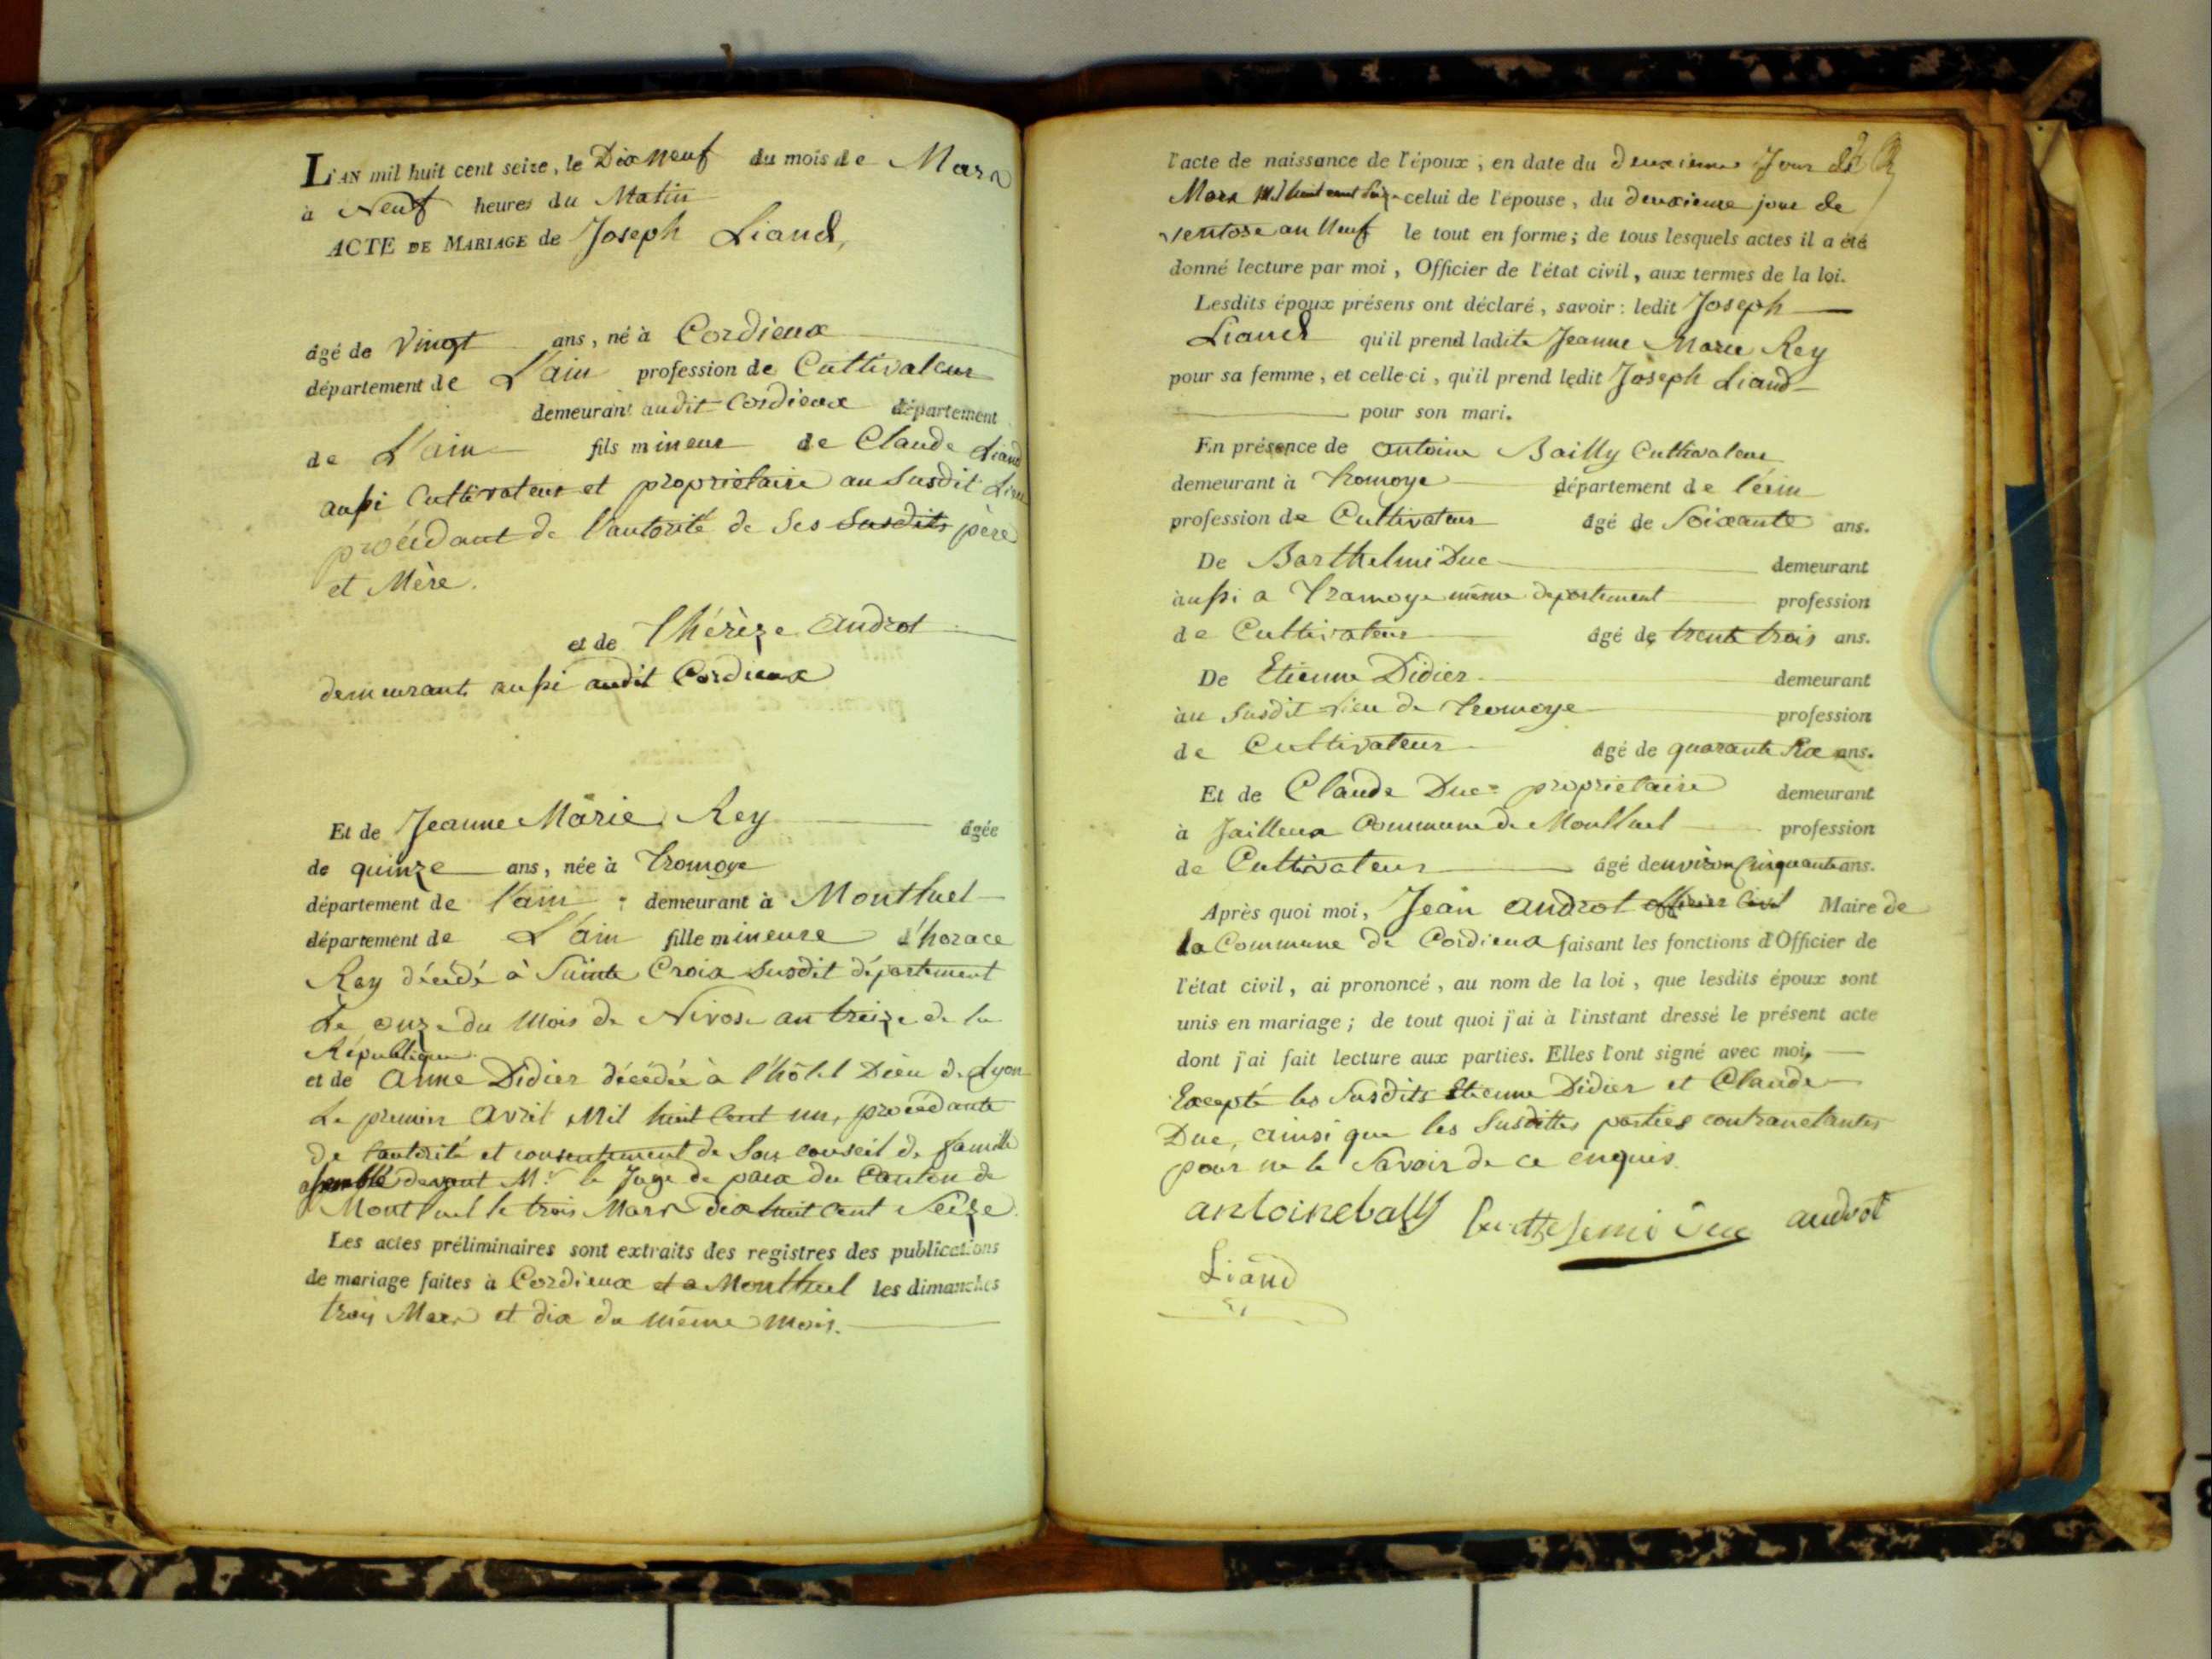 L'AN mil huit cent seize, le Dix neuf du mois de Mars
à Neuf heures du Matin
ACTE DE MARIAGE de Joseph Liand,
âgé de Vingt ans, né à Cordieux
département de L'ain profession de Cultivateur
demeurant audit Cordieux département
de L'ain fils mineur de Claude Liand
aussi Cultivateur et propriétaire au Susdit Lieu
procédant de l'autorité de Ses Susdits père
et Mère.
et de Thérèze Androt
demeurants aussi audit Cordieux
Et de Jeanne Marie Rey âgée
de quinze ans, née à Tramoye
département de l'ain demeurant à Montluel
département de L'ain fille mineure d'horace
Rey décédé à Sainte Croix Susdit département
Le onze du Mois de Nivose an treize de la
République
et de Anne Didier décédée à l'hôtel Dieu de Lyon
Le premier Avril Mil huit Cent un, procédante
de l'autorité et consentement de Son conseil de famille
assemblé devant Mr le Juge de paix du Canton de
Montluel le trois Mars dix huit Cent Seize
Les actes préliminaires sont extraits des registres des publications
de mariage faites à Cordieux et a Montluel les dimanches
trois Mars et dix du même mois.
l'acte de naissance de l'époux, en date du deuxieme Jour de
Mars mil huit cent Seize celui de l'épouse, du deuxieme jour de
ventose an Neuf le tout en forme; de tous lesquels actes il a été
donné lecture par moi, Officier de l'état civil, aux termes de la loi.
Lesdits époux présens ont déclaré, savoir: ledit Joseph
Liand qu'il prend ladite Jeanne Marie Rey
pour sa femme, et celle-ci, qu'il prend ledit Joseph Liand
pour son mari.
En présence de Antoine Bailly Cultivateur
demeurant à Tramoye département de l'ein
profession de Cultivateur âgé de Soixante ans.
De Barthelmi Duc demeurant
aussi a Tramoye même departement profession
de Cultivateur âgé de trente trois ans.
De Etienne Didier demeurant
au Susdit lieu de Tramoye profession
de Cultivateur âgé de quarante Six ans.
Et de Claude Duc propriétaire demeurant
à Jailleux Commune de Montluel profession
de Cultivateur âgé d'environ Cinquante ans.
Après quoi moi, Jean Androt officier Civil Maire de
la Commune de Cordieux faisant les fonctions d'Officier de
l'état civil, ai prononcé, au nom de la loi, que lesdits époux sont
unis en mariage; de tout quoi j'ai à l'instant dressé le présent acte
dont j'ai fait lecture aux parties. Elles l'ont signé avec moi,
Excepté les Susdits Etienne Didier et Claude
Duc, ainsi que les Susdittes parties contranctantes
pour ne le Savoir de ce enquis.
antoine bally barthelemi Duc androt
Liand